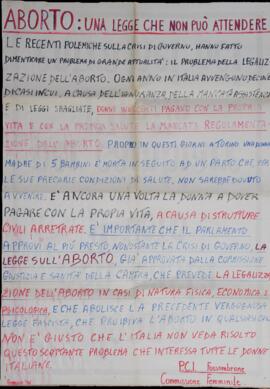 ABORTO: UNA LEGGE CHE NON PUÒ ATTENDERE
LE RECENTI POLEMICHE SULLA CRISI DI GOVERNO, HANNO FATTO
DIMENTICARE UN PROBLEMA DI GRANDE ATTUALITÀ: IL PROBLEMA DELLA LEGALIZ
ZAZIONE DELL'ABORTO. OGNI ANNO IN ITALIA AVVENGONO DECINE
DI CASI IN CUI, A CAUSA DELL'IGNORANZA DELLA MANCATA ASSISTENZA
E DI LEGGI SBAGLIATE, DONNE INNOCENTI PAGANO CON LA PROPRIA
VITA E CON LA PROPRIA SALUTE LA MANCATA REGOLAMENTA
ZIONE DELL'ABORTO. PROPRIO IN QUESTI GIORNI A TORINO UNA DONNA
MADRE DI 5 BAMBINI È MORTA IN SEGUITO AD UN PARTO CHE PER
LE SUE PRECARIE CONDIZIONI DI SALUTE, NON SAREBBE DOVUTO
AVVENIRE. E' ANCORA UNA VOLTA LA DONNA A DOVER
PAGARE CON LA PROPIA VITA, A CAUSA DI STRUTTURE
CIVILI ARRETRATE. È IMPORTANTE CHE IL PARLAMENTO
APPROVI AL PIÙ PRESTO, NONOSTANTE LA CRISI DI GOVERNO, LA
LEGGE SULL'ABORTO, GIÀ APPROVATA DALLA COMMISSIONE
GIUSTIZIA E SANITÀ DELLA CAMERA, CHE PREVEDE LA LEGALIZZA
ZIONE DELL'ABORTO IN CASI DI NATURA FISICA, ECONOMICA E
PSICOLOGICA, E CHE ABOLISCE LA PRECEDENTE VERGOGNOSA
LEGGE FASCISTA, CHE PROIBIVA L'ABORTO IN QUALSIASI
NON E' GIUSTO CHE L'ITALIA NON VEDA RISOLTO
QUESTO SCOTTANTE PROBLEMA CHE INTERESSA TUTTE LE DONNE
ITALIANE.
P.C.I. Fossombrone
Commissione Femminile